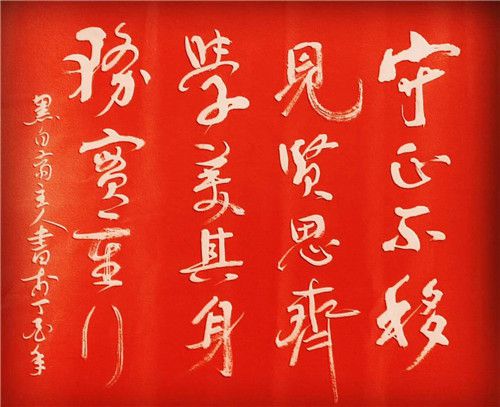 守正不移
見賢思齊
學美其身
務實重行
黑白齋主人書於丁酉年